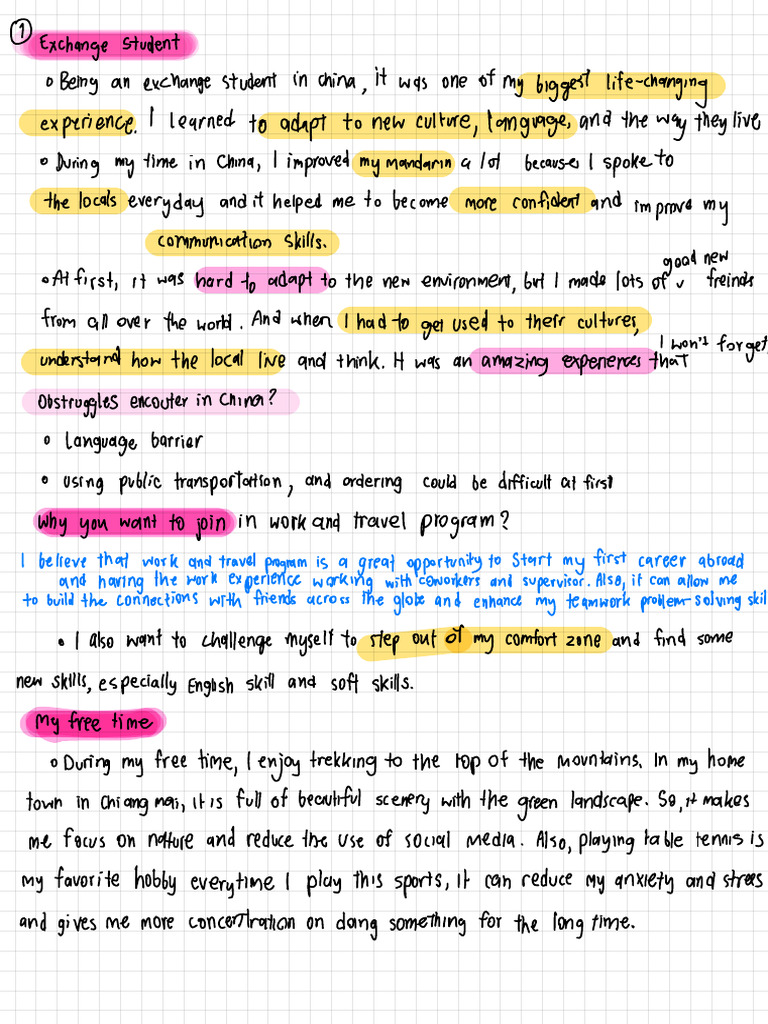 ① Exchange student
◦ Being an exchange student in china, it was one of my biggest life-changing
experience. I learned to adapt to new culture, language, and the way they live
◦ During my time in China, I improved my mandarin a lot because I spoke to
the locals everyday and it helped me to become more confident and improve my
communication skills.
◦ At first, it was hard to adapt to the new environment, but I made lots of ˅ good new freinds
from all over the world. And when I had to get used to their cultures,
understand how the local live and think. It was an amazing experiences that I won't forget,
Obstruggles encouter in China?
◦ Language barrier
◦ using public transportation, and ordering could be difficult at first
Why you want to join in work and travel program?
I believe that work and travel program is a great opportunity to start my first career abroad
and having the work experience working with coworkers and supervisor. Also, it can allow me
to build the connections with friends across the globe and enhance my teamwork problem-solving skil
• I also want to challenge myself to step out of my comfort zone and find some
new skills, especially English skill and soft skills.
My free time
◦ During my free time, I enjoy trekking to the top of the mountains. In my home
town in Chiang mai, it is full of beautiful scenery with the green landscape. So, it makes
me focus on nature and reduce the use of social media. Also, playing table tennis is
my favorite hobby everytime I play this sports, it can reduce my anxiety and stress
and gives me more concentration on doing something for the long time.